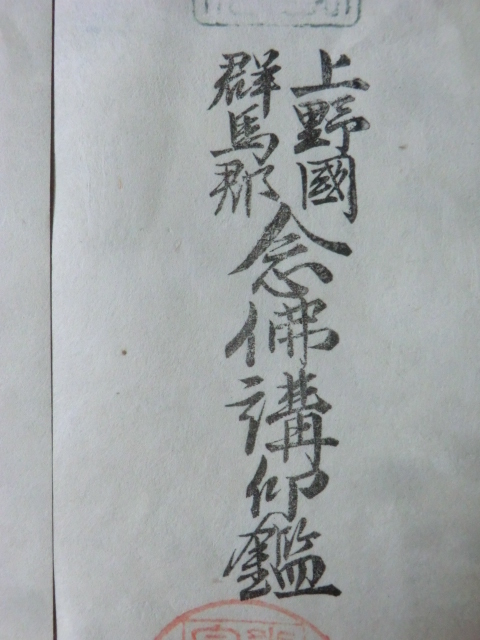 上野國
群馬郡
念佛講仰鑑